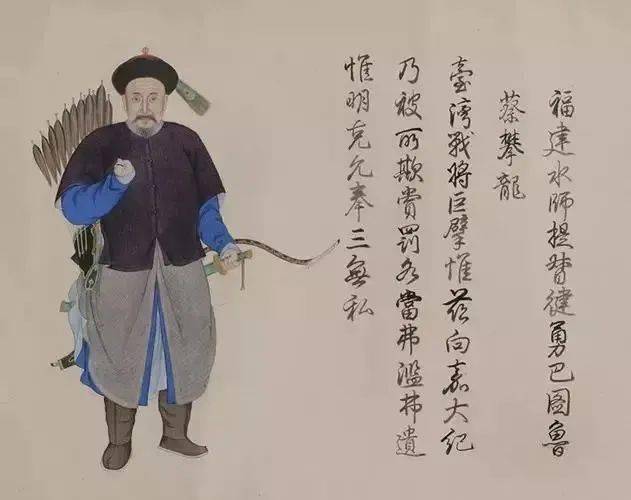 福建水師提督健勇巴圖魯
蔡攀龍
臺灣戰將巨擘惟茲向嘉大紀
乃被所欺賞罰各當弗濫弗遺
惟明克允奉三無私